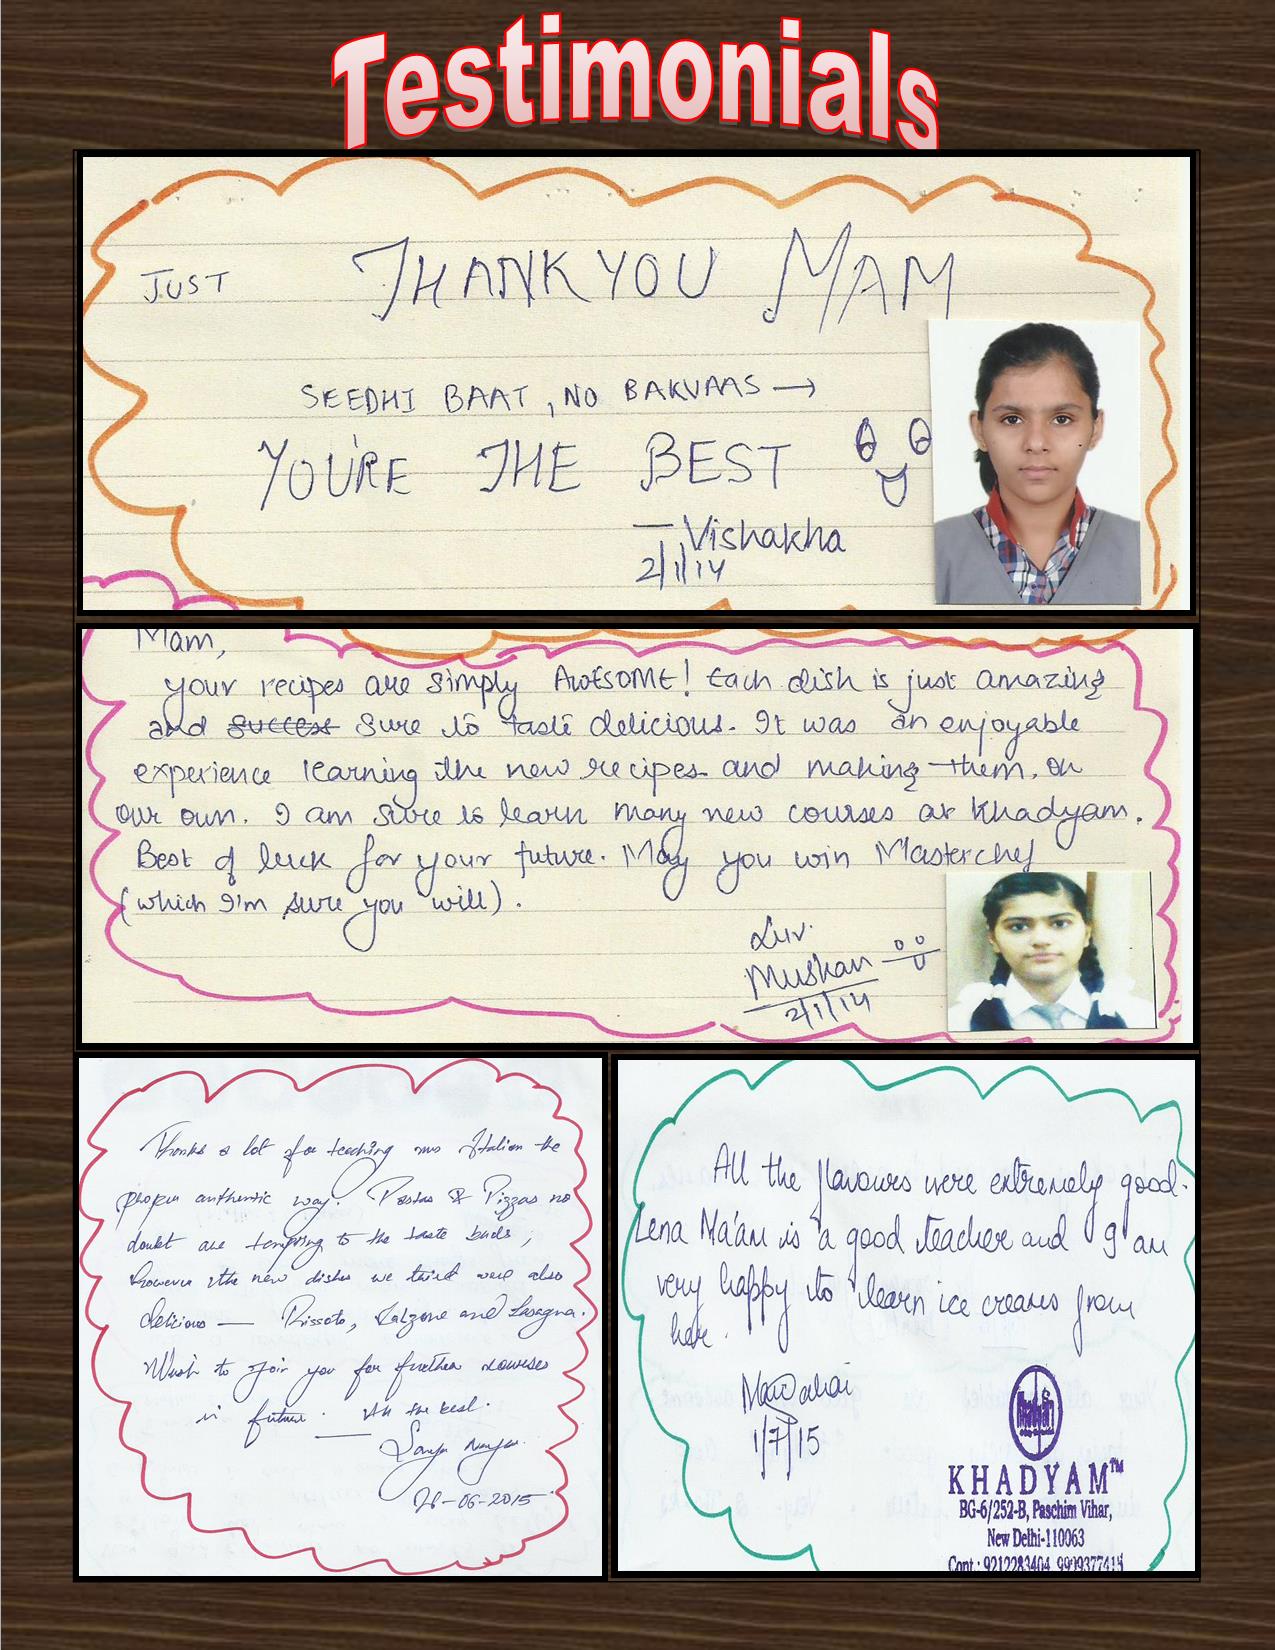 Testimonials
JUST THANK YOU MAM
SEEDHI BAAT, NO BAKVAAS →
YOU'RE THE BEST
— Vishakha
2/1/14
Mam,
Your recipes are simply AWESOME! Each dish is just amazing
and success sure to taste delicious. It was an enjoyable
experience learning the new recipes and making them, on
our own. I am sure to learn many new courses at Khadyam.
Best of luck for your future. May you win Masterchef
(which I'm sure you will).
Luv.
Muskan
2/1/14
Thanks a lot for teaching me Italian the
proper authentic way. Pastas & Pizzas no
doubt are tempting to the taste buds,
however the new dishes we tried were also
delicious — Rissoto, Calzone and Lasagna.
Wish to join you for further courses
in future. All the best.
-06-2015
All the flavours were extremely good.
Lena Ma'am is a good teacher and I am
very happy to learn ice creams from
her.
1/7/15
KHADYAM™
BG-6/252-B, Paschim Vihar,
New Delhi-110063
Cont.: 9212283404, 9999377415